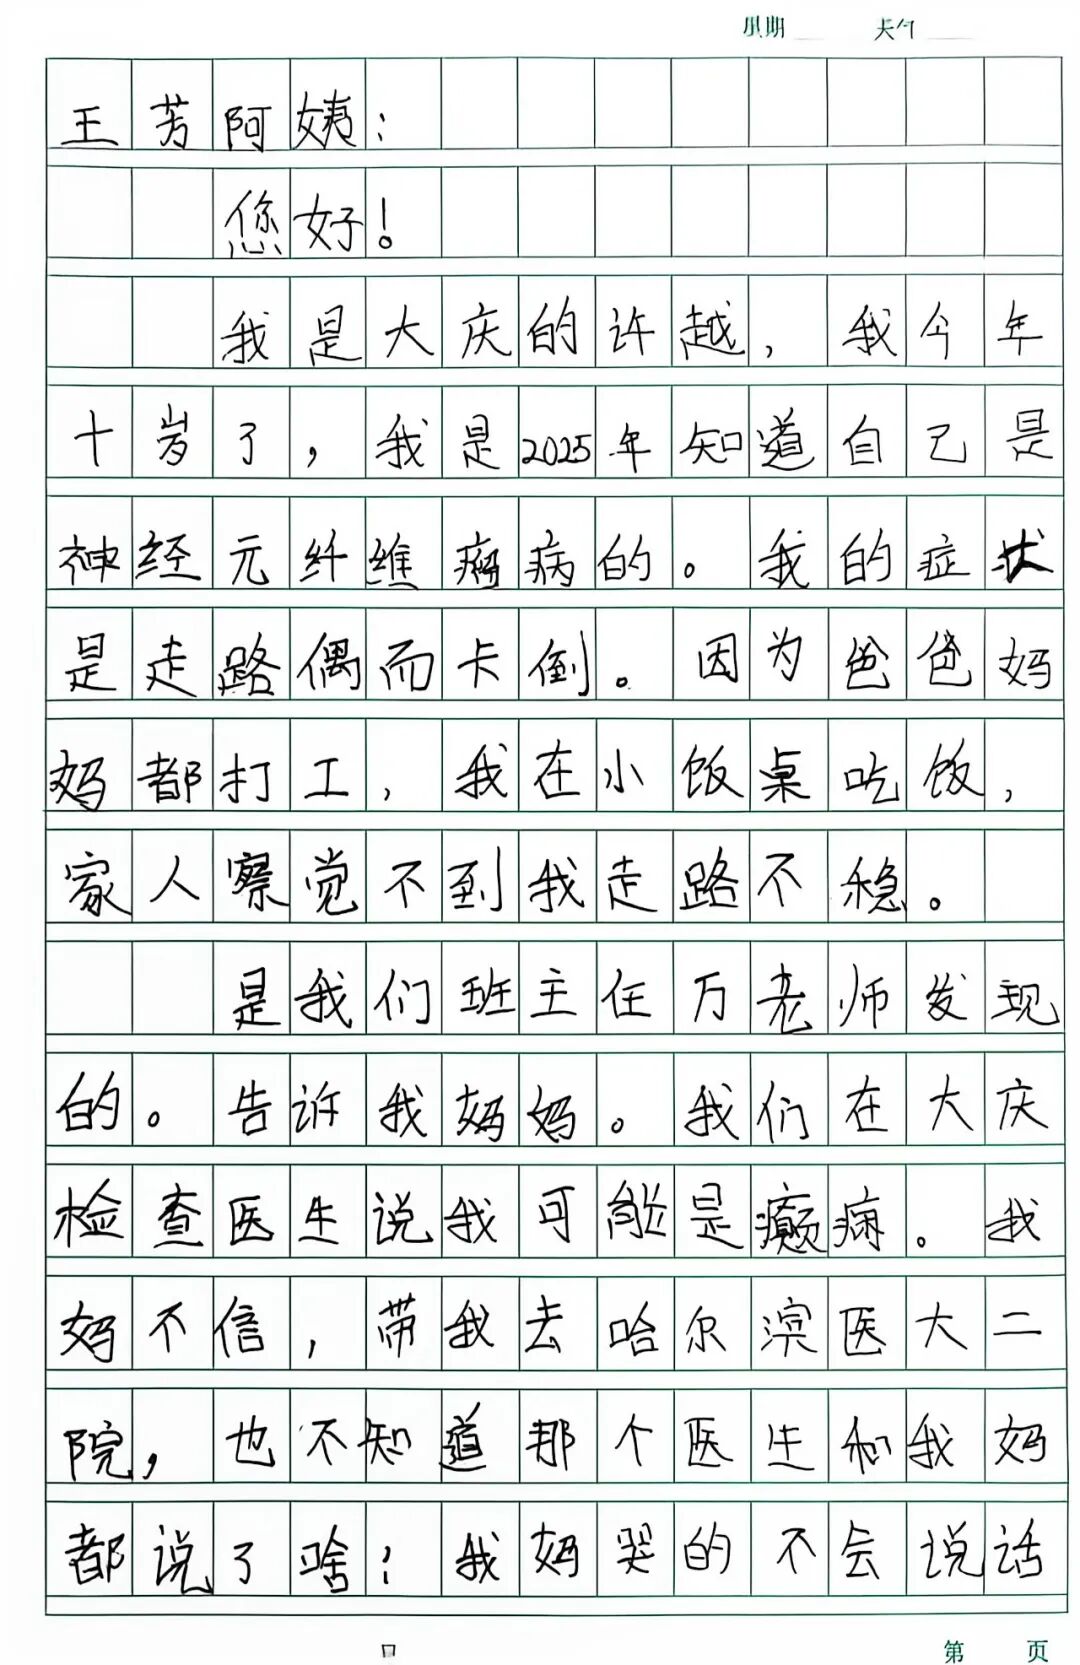 星期 天气
王芳阿姨：
您好！
我是大庆的许越，我今年
十岁了，我是2025年知道自己是
神经元纤维瘤病的。我的症状
是走路偶而卡倒。因为爸爸妈
妈都打工，我在小饭桌吃饭，
家人察觉不到我走路不稳。
是我们班主任万老师发现
的。告诉我妈妈。我们在大庆
检查医生说我可能是癫痫。我
妈不信，带我去哈尔滨医大二
院，也不知道那个医生和我妈
都说了啥！我妈哭的不会说话
第 页